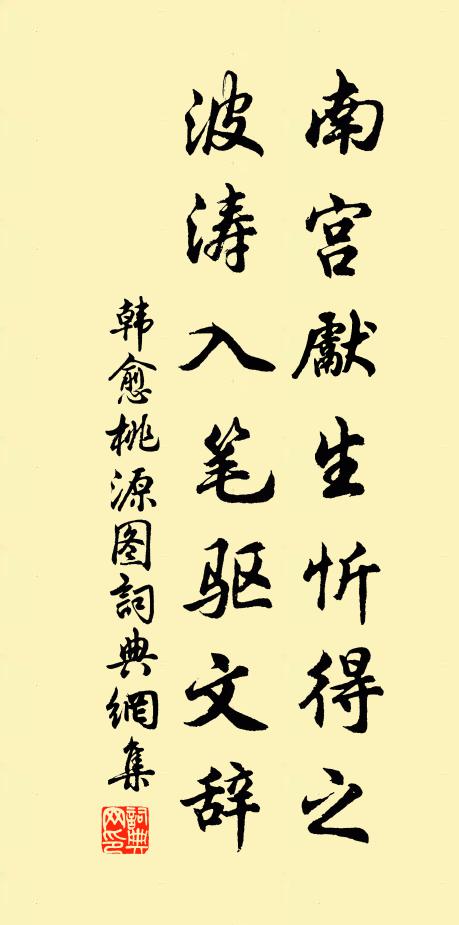 南宫獻生忻得之
波涛入笔驱文辞
韩愈桃源图詞典網集
詞典网印